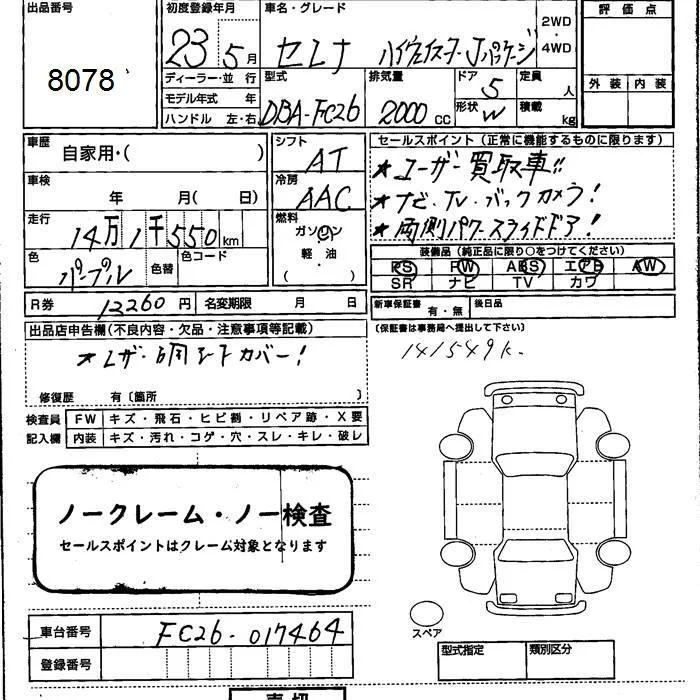 出品番号
8078
初度登録年月
23 5月
車名・グレード
セレナ ハイウェイスター Jパッケージ
2WD
・
4WD
評価点
外装 内装
ディーラー・並 行
モデル年式 年
ハンドル 左・右
型式
DBA-FC26
排気量
2000 CC
ドア 5
形状 W
定員 人
積載 kg
車歴
自家用・( )
車検
年 月( 日)
走行
14万1千550km
色
パープル
色替
色コード
シフト
AT
冷房
AAC
燃料
ガソリン
軽・油
( )
セールスポイント(正常に機能するものに限ります)
★ユーザー買取車!!
★ナビ.TV.バックカメラ!
★両側パワースライドドア!
装備品(純正品に限り○をつけてください)
PS PW ABS エアB AW
SR ナビ TV カワ
R券 12260円 名変期限 月 日
新車保証書 有・無 後日品
(保証書は事務局へ提出して下さい)
出品店申告欄(不良内容・欠品・注意事項等記載)
141549k.
修復歴 有〔箇所 〕
検査員 FW キズ・飛石・ヒビ割・リペア跡・X要
記入欄 内装 キズ・汚れ・コゲ・穴・スレ・キレ・破レ
ノークレーム・ノー検査
セールスポイントはクレーム対象となります
スペア
車台番号 FC26-017464
登録番号
型式指定 類別区分